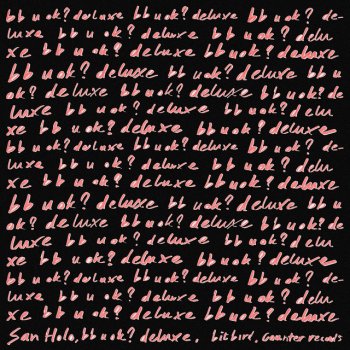 bb u ok? deluxe bb u ok? deluxe bb u ok? de-
luxe bb u ok? deluxe bb u ok? delu
xe bb u ok? deluxe bb u ok? deluxe
bb u ok? deluxe bb u ok? deluxe bb u
ok? deluxe bb u ok? deluxe bb u ok? de
luxe bb u ok? deluxe bb u ok? delu
xe bb u ok? deluxe bb u ok? deluxe
bb u ok? deluxe bb u ok? deluxe bb u ok? de-
luxe bb u ok? deluxe bb u ok? delu
xe bb u ok? deluxe bb u ok? deluxe
bb u ok? deluxe bb u ok? deluxe bb u
ok? deluxe bb u ok? deluxe bb u ok? de
luxe bb u ok? deluxe bb u ok? delu
xe bb u ok? deluxe bb u ok? deluxe
bb u ok? deluxe bb u ok? deluxe bb u ok? de-
luxe bb u ok? deluxe bb u ok? deluxe
San Holo, bb u ok? deluxe, bitbird, Counter records